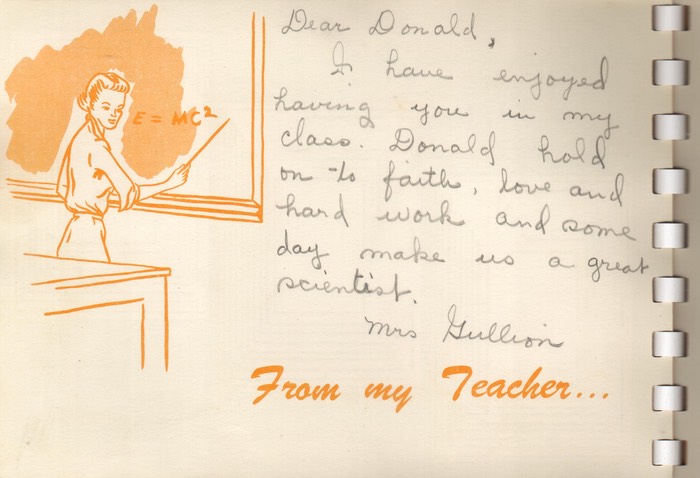 E = MC²
Dear Donald,
I have enjoyed
having you in my
class. Donald hold
on to faith, love and
hard work and some
day make us a great
scientist.
Mrs Gullion
From my Teacher...